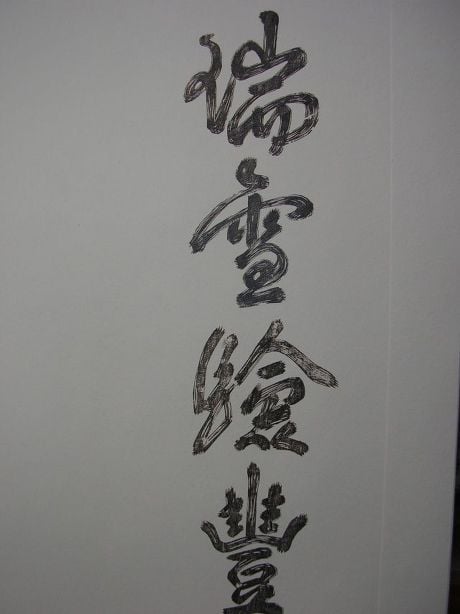 瑞雪驗豐